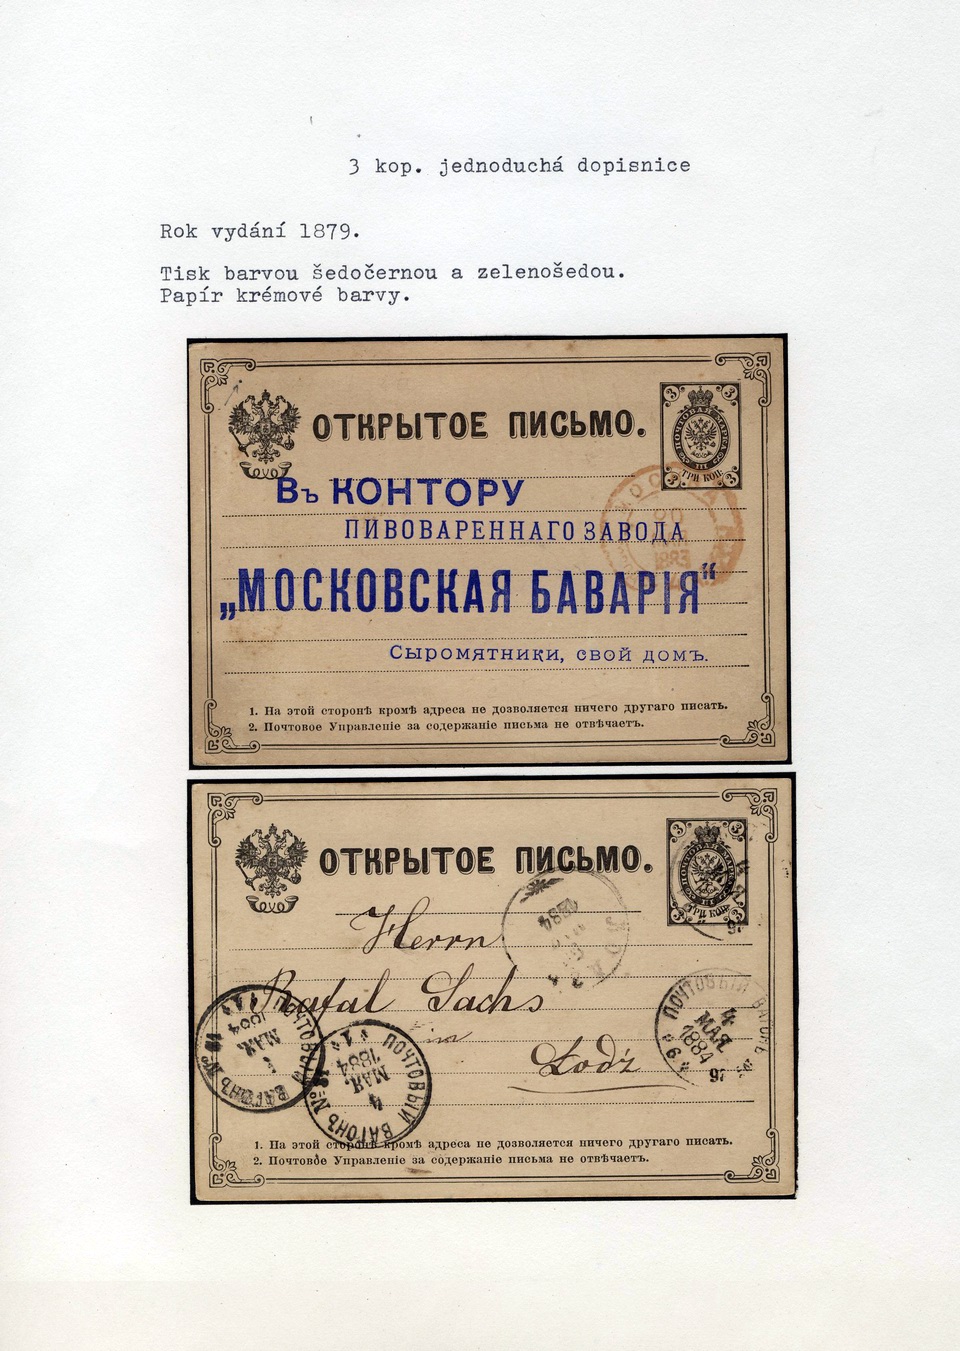 3 kop. jednoduchá dopisnice
Rok vydání 1879.
Tisk barvou šedočernou a zelenošedou.
Papír krémové barvy.
ОТКРЫТОЕ ПИСЬМО.
3 3
ПОЧТОВАЯ МАРКА
ТРИ КОП.
3 3
Въ КОНТОРУ
ПИВОВАРЕННАГО ЗАВОДА
„МОСКОВСКАЯ БАВАРІЯ“
Сыромятники, свой домъ.
МОСКВА
1883
1. На этой сторонѣ кромѣ адреса не дозволяется ничего другаго писать.
2. Почтовое Управленіе за содержаніе письма не отвѣчаетъ.
ОТКРЫТОЕ ПИСЬМО.
3 3
ПОЧТОВАЯ МАРКА
ТРИ КОП.
3
1884
Herrn
Rafal Sachs
in
Lodź
ПОЧТОВЫЙ ВАГОНЪ №
МАЯ
1884
ПОЧТОВЫЙ ВАГОНЪ №
4
МАЯ
1884
ПОЧТОВЫЙ ВАГОНЪ
4
МАЯ
1884
97
1. На этой сторонѣ кромѣ адреса не дозволяется ничего другаго писать.
2. Почтовое Управленіе за содержаніе письма не отвѣчаетъ.